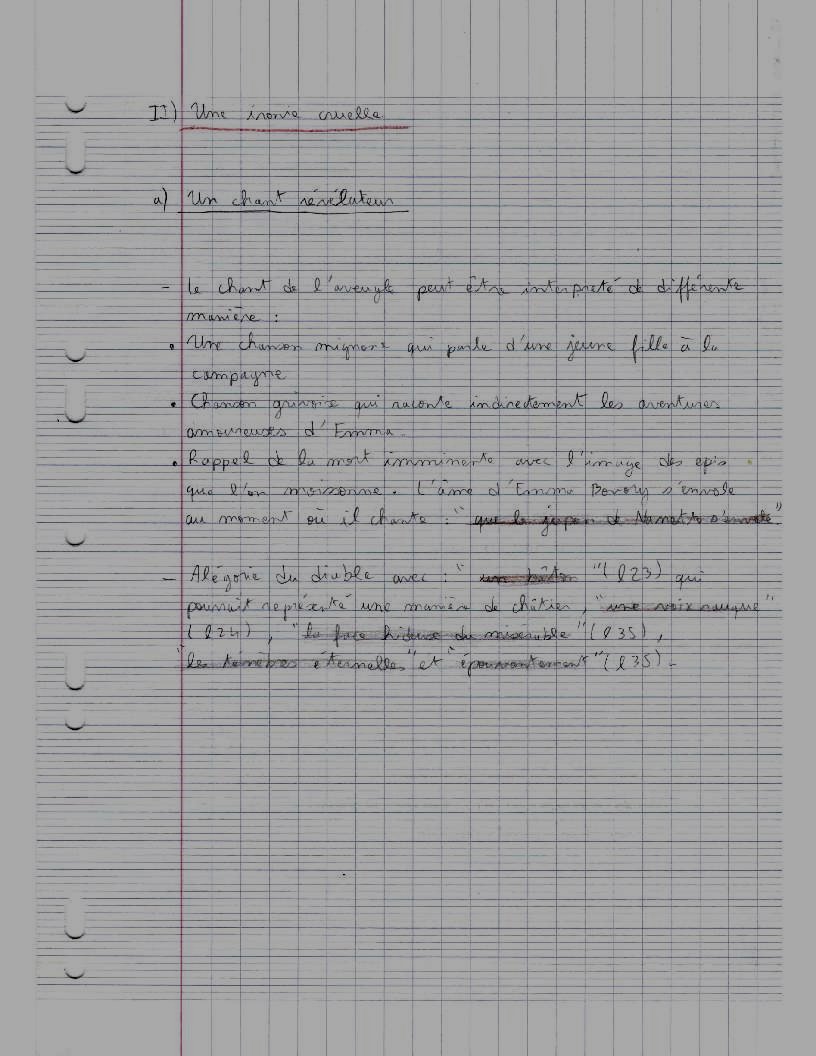 II) Une ironie cruelle
a) Un chant révélateur
- Le chant de l'aveugle peut être interpreté de différente
manière :
• Une chanson mignone qui parle d'une jeune fille à la
campagne
• Chanson grivoise qui raconte indirectement les aventures
amoureuses d'Emma.
• Rappel de la mort imminente avec l'image des epis
que l'on moissonne. L'âme d'Emma Bovary s'envole
au moment où il chante : "que le jupon de Nanette s'envole"
- Alégorie du diable avec : "un bâton" (l 23) qui
pourrait représenté une manière de châtier, "une voix rauque"
(l 24), "la face hideuse du misérable" (l 35),
"les ténèbres éternelles" et "épouvantement" (l 35).